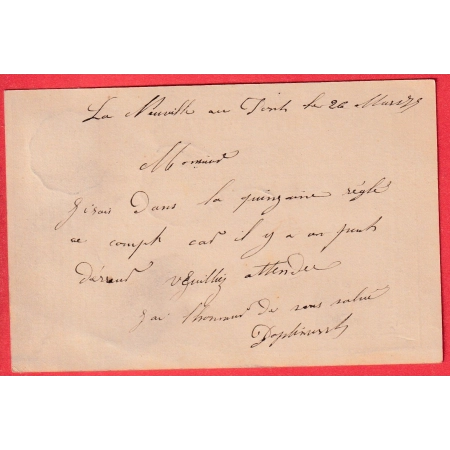 La Neuville au Pont le 26 Mars 78
Monsieur
J irais dans la quinzaine régle
ce compte car il y a un petit
d'erreur veuilliez attendre
j ai l'honneur de vous salué